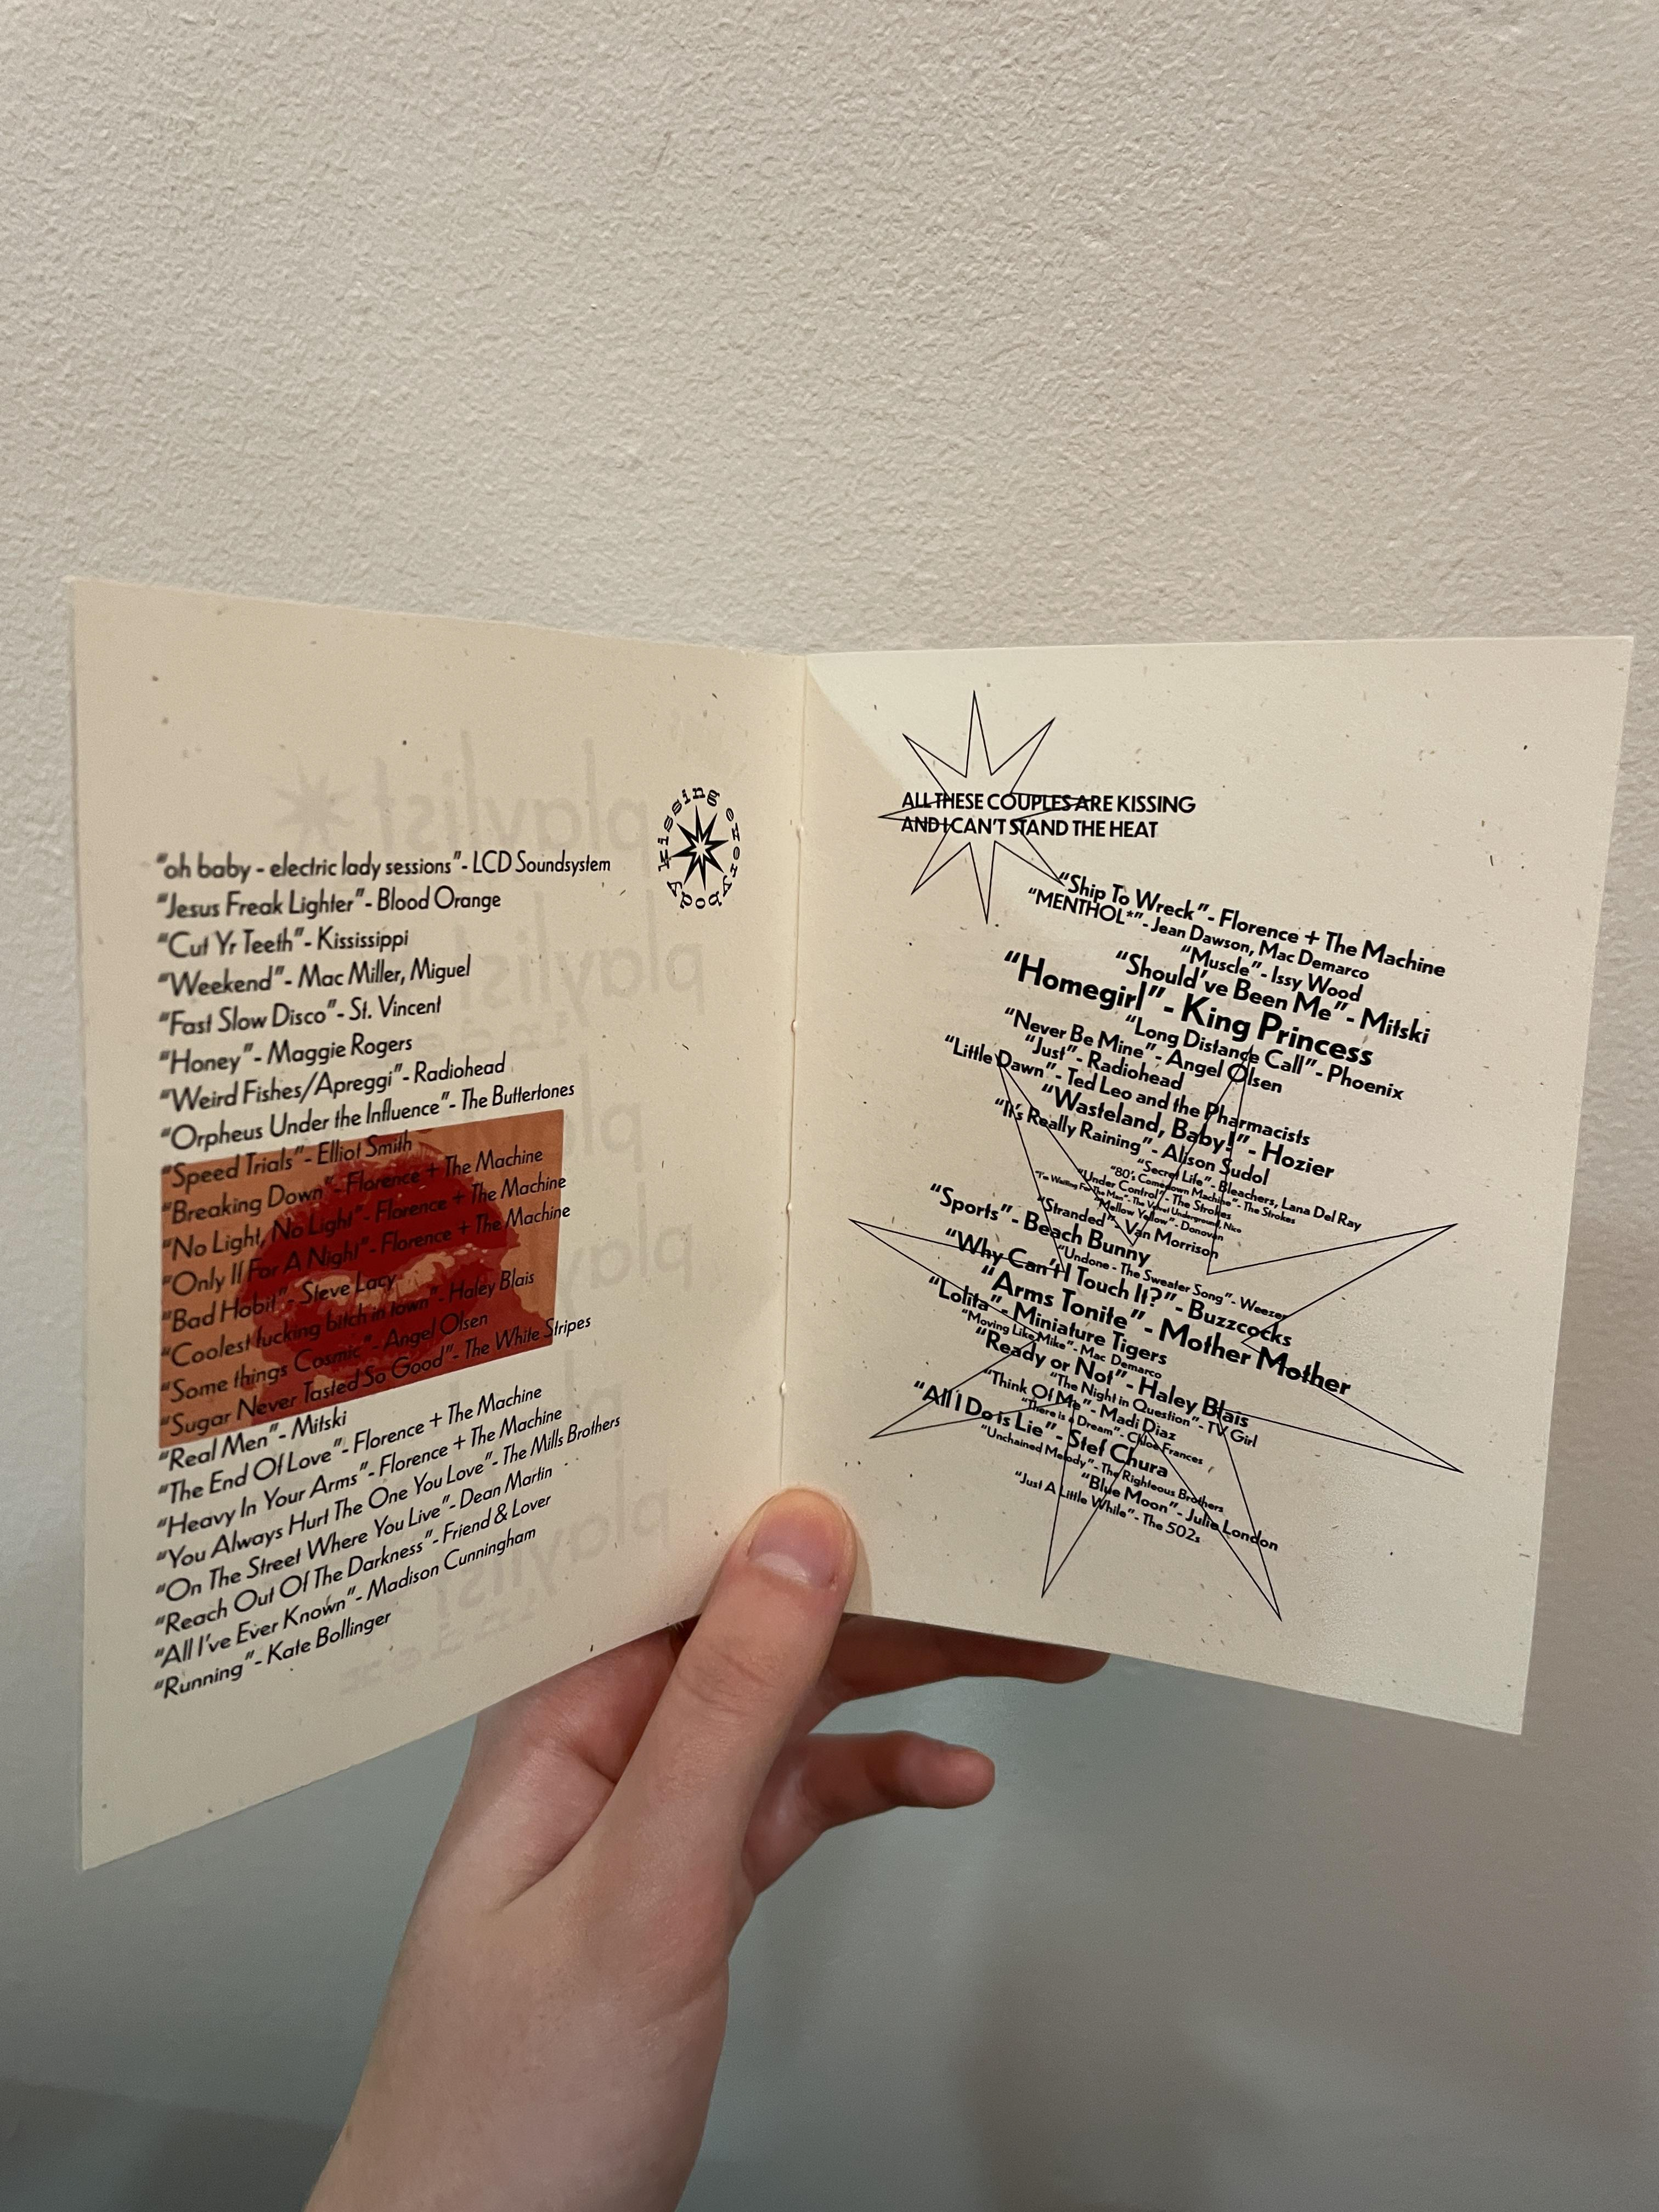 kissing everybody
"oh baby - electric lady sessions"- LCD Soundsystem
"Jesus Freak Lighter"- Blood Orange
"Cut Yr Teeth"- Kississippi
"Weekend"- Mac Miller, Miguel
"Fast Slow Disco"- St. Vincent
"Honey"- Maggie Rogers
"Weird Fishes/Apreggi"- Radiohead
"Orpheus Under the Influence"- The Buttertones
"Speed Trials"- Elliot Smith
"Breaking Down"- Florence + The Machine
"No Light, No Light"- Florence + The Machine
"Only If For A Night"- Florence + The Machine
"Bad Habit"- Steve Lacy
"Coolest fucking bitch in town"- Haley Blais
"Some things Cosmic"- Angel Olsen
"Sugar Never Tasted So Good"- The White Stripes
"Real Men"- Mitski
"The End Of Love"- Florence + The Machine
"Heavy In Your Arms"- Florence + The Machine
"You Always Hurt The One You Love"- The Mills Brothers
"On The Street Where You Live"- Dean Martin
"Reach Out Of The Darkness"- Friend & Lover
"All I've Ever Known"- Madison Cunningham
"Running"- Kate Bollinger
ALL THESE COUPLES ARE KISSING
AND I CAN'T STAND THE HEAT
"Ship To Wreck"- Florence + The Machine
"MENTHOL*"- Jean Dawson, Mac Demarco
"Muscle"- Issy Wood
"Should've Been Me"- Mitski
"Homegirl"- King Princess
"Long Distance Call"- Phoenix
"Never Be Mine"- Angel Olsen
"Just"- Radiohead
"Little Dawn"- Ted Leo and the Pharmacists
"Wasteland, Baby!"- Hozier
"It's Really Raining"- Alison Sudol
"Secret Life"- Bleachers, Lana Del Ray
"80's Comedown Machine"- The Strokes
"Under Control"- The Strokes
"I'm Waiting For The Man"- The Velvet Underground, Nico
"Mellow Yellow"- Donovan
"Stranded"- Van Morrison
"Sports"- Beach Bunny
"Undone - The Sweater Song"- Weezer
"Why Can't I Touch It?"- Buzzcocks
"Arms Tonite"- Mother Mother
"Lolita"- Miniature Tigers
"Moving Like Mike"- Mac Demarco
"Ready or Not"- Haley Blais
"The Night in Question"- TV Girl
"Think Of Me"- Madi Diaz
"There is a Dream"- Chloe Frances
"All I Do is Lie"- Stef Chura
"Unchained Melody"- The Righteous Brothers
"Blue Moon"- Julie London
"Just A Little While"- The 502s